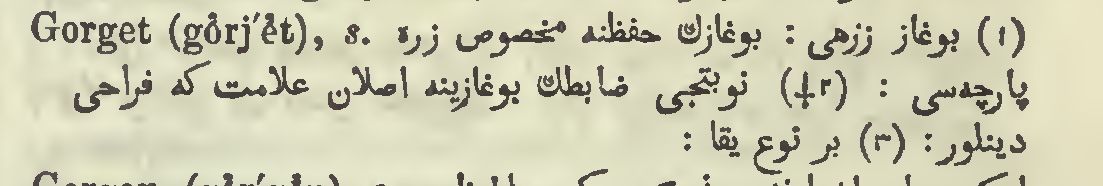 Gorget (gôrj′ĕt), s. (١) بوغاز زرهی : بوغازڭ حفظنه مخصوص زره
پارچه‌سی : (٢╁) نوبتجی ضابطڭ بوغازينه اصلان علامت كه فراحی
دينلور : (٣) بر نوع يقا :